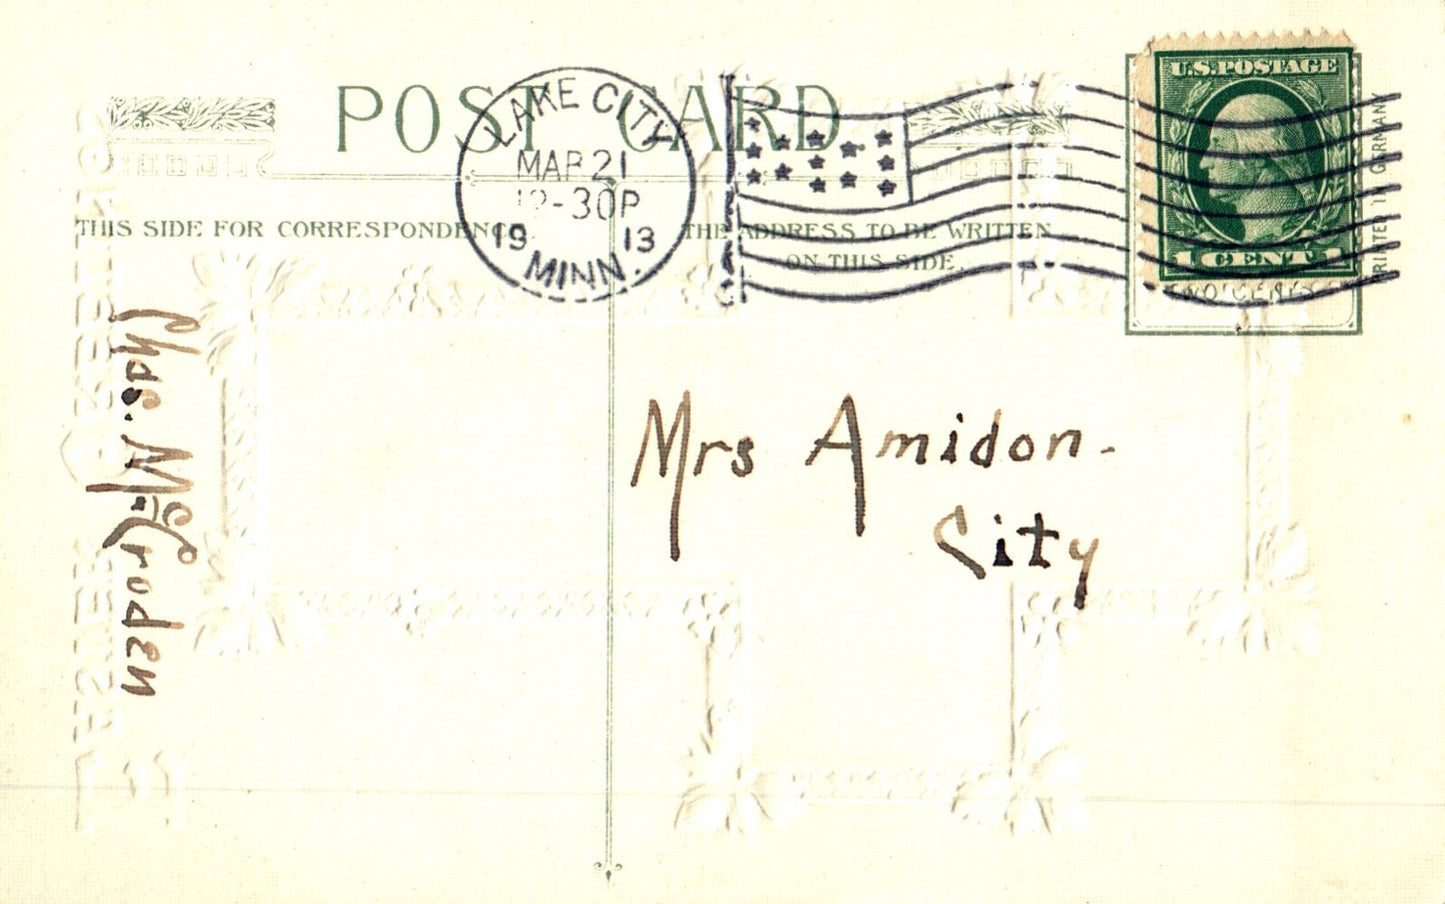 POST CARD.
LAKE CITY
MAR 21
12-30P
19 13
MINN.
U.S. POSTAGE
1 CENT 1
TWO CENTS
PRINTED IN GERMANY
THIS SIDE FOR CORRESPONDENCE.
THE ADDRESS TO BE WRITTEN
ON THIS SIDE.
Chas. McCroden
Mrs Amidon-
City